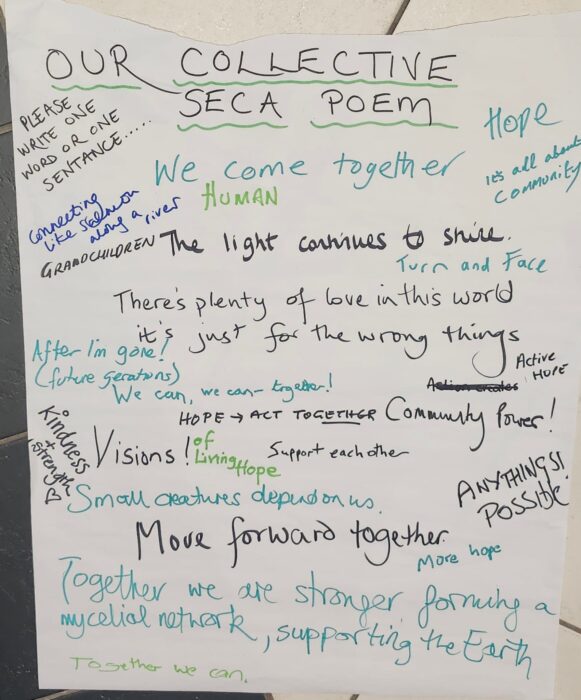 OUR COLLECTIVE
SECA POEM
PLEASE
WRITE ONE
WORD OR ONE
SENTANCE......
Hope
it's all about
Community
We come together
HUMAN
Connecting
like salmon
along a river
GRANDCHILDREN
The light continues to shine.
Turn and Face
There's plenty of love in this world
it's just for the wrong things
After I'm gone!
(future gerations)
We can, we can - together!
Active
HOPE
Action creates
HOPE → ACT TOGETHER
Community Power!
Kindness
+
strength
Visions!
of
Living Hope
Support each other
ANYTHINGS!
POSSIBLE
Small creatures depend on us.
Move forward together
More hope
Together we are stronger forming a
mycelial network, supporting the Earth
Together we can.